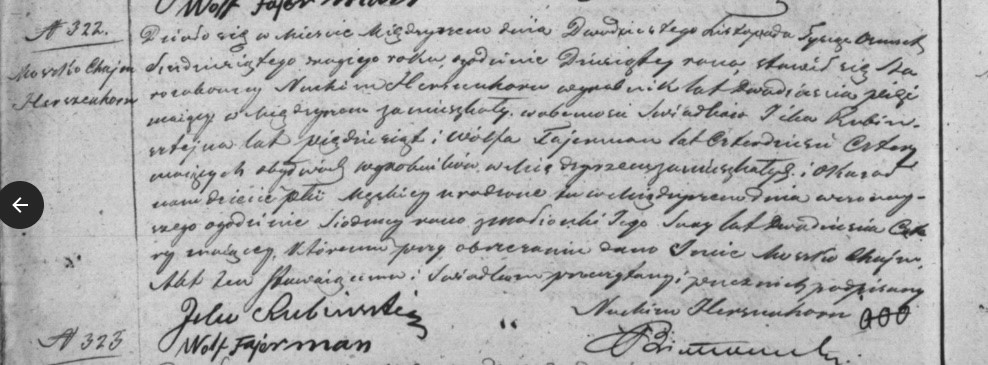 Wolf Fajerman
№ 322.
Moszko Chaim
Herszenhorn
Działo się w Mieście Międzyrzecu dnia Dwudziestego Listopada Tysiąc Ośmset
Siedmdziesiątego roku, o godzinie Dziesiątej rano, stawił się Sta
rozakonny Nuchim Herszenhorn wyrobnik lat dwadzieścia pięć
mający w Międzyrzecu zamieszkały, w obecności Świadków Icka Rubin-
sztejna lat pięćdziesiąt i Wolfa Fajerman lat Czterdzieści Cztery
mających obydwóch wyrobników w Międzyrzecu zamieszkałych i okazał
nam dziecię płci Męskiej urodzone tu w Międzyrzecu dnia
szego o godzinie Siódmej rano z małżonki Jego Sury lat dwadzieścia Czte
ry mającej, któremu przy obrzezaniu dano Imie Moszko Chaim.
Akt ten Stawającemu i Świadkom przeczytany i przez nich podpisany
Nuchim Herszenhorn
Wolf Fajerman
№ 323